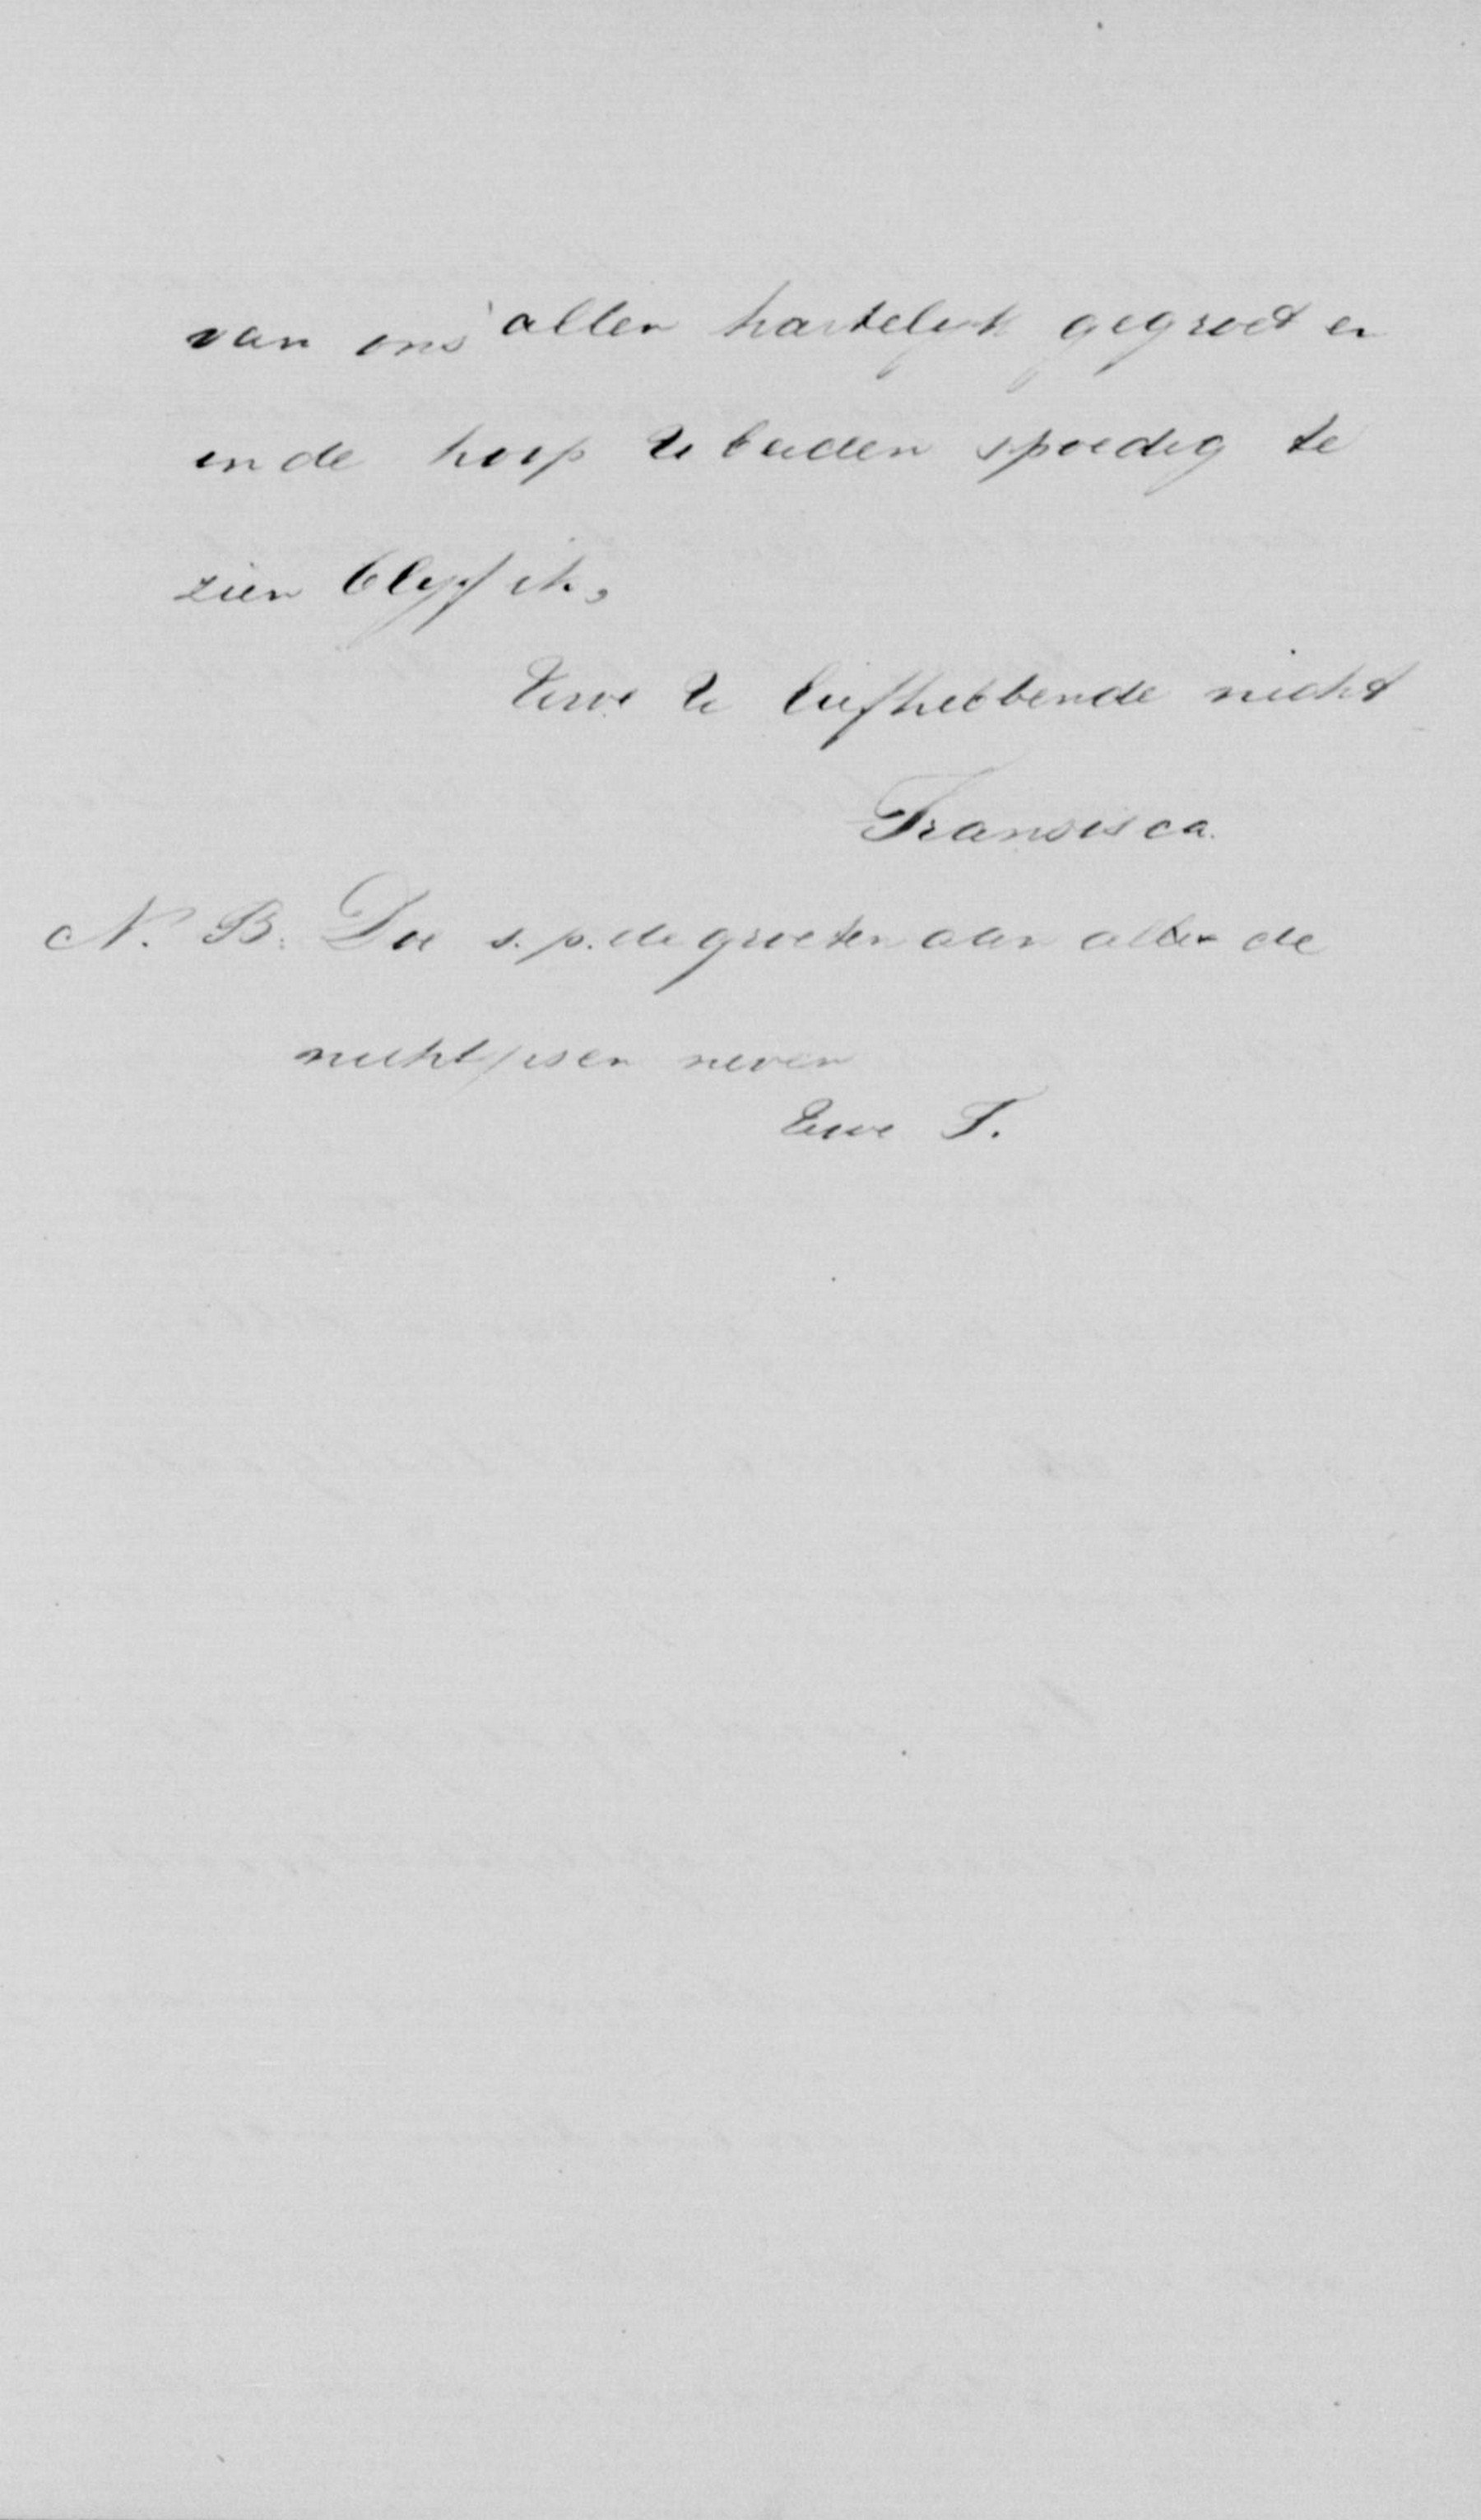 van ons allen hartelijk gegroet en
in de hoop U beiden spoedig te
zien blijf ik,
Uwe U liefhebbende nicht
Francisca.
N. B. Doe s. p. de groeten aan alle de
nichtjes en neven
Uwe F.